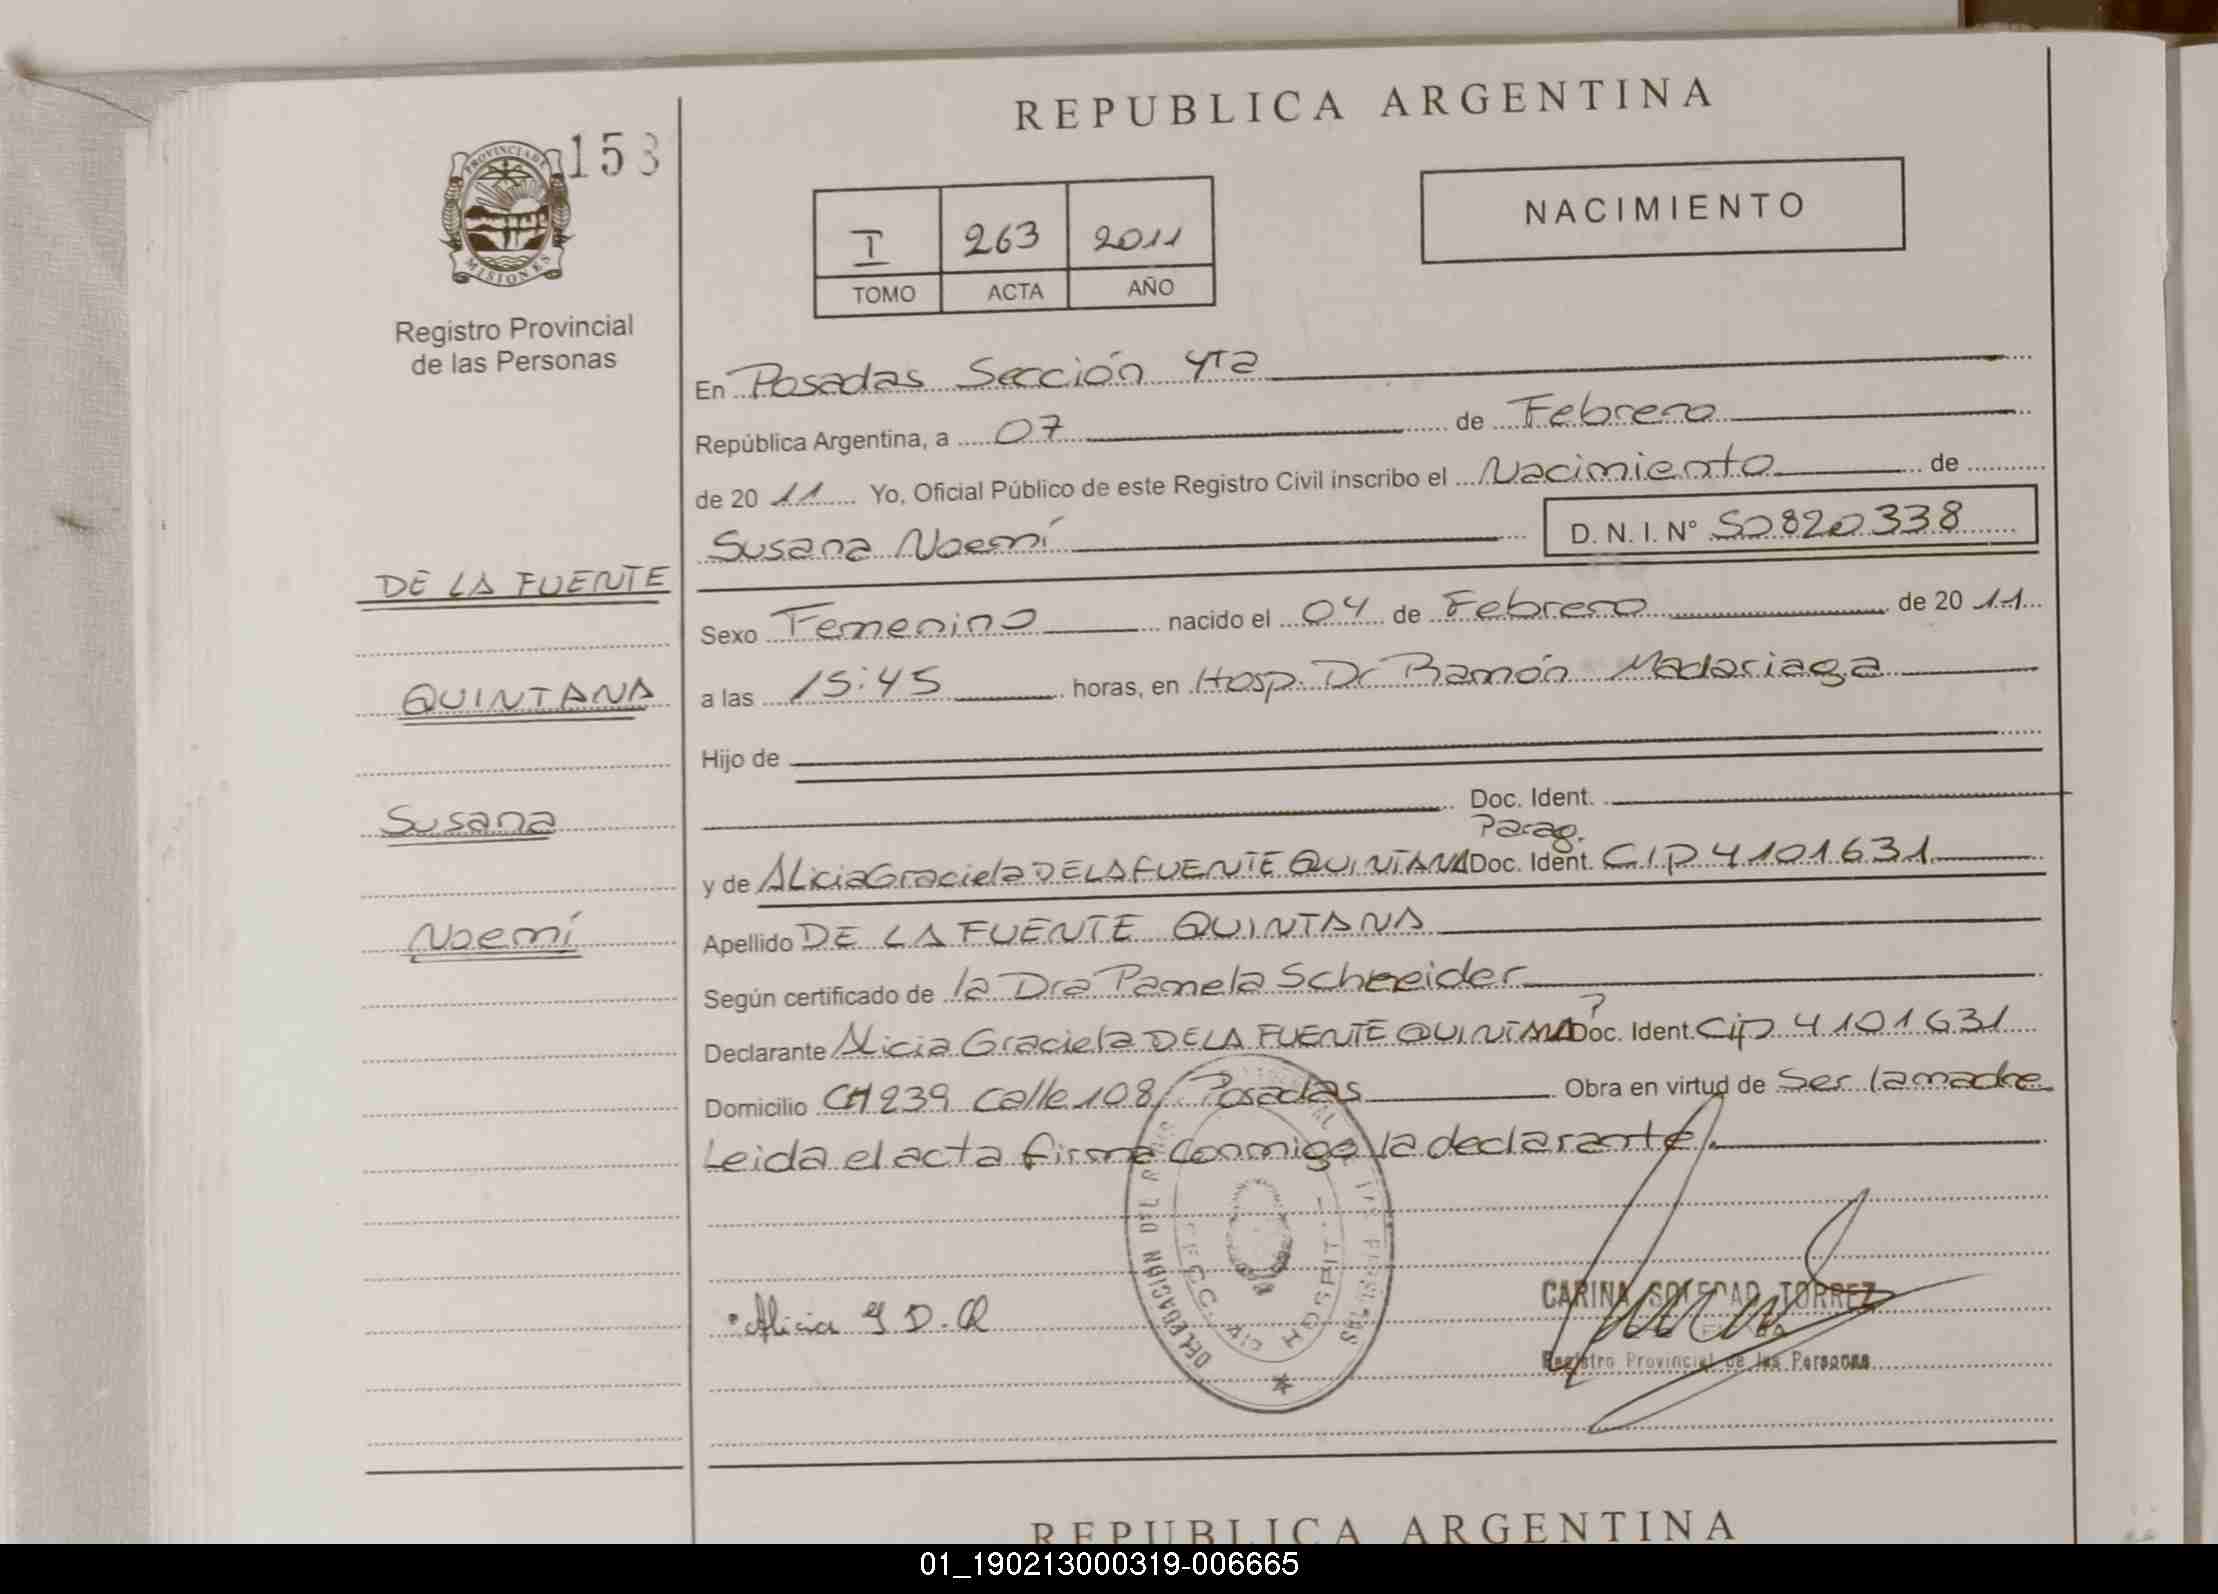 REPUBLICA ARGENTINA
153
PROVINCIA DE
MISIONES
Registro Provincial
de las Personas
NACIMIENTO
I 263 2011
TOMO ACTA AÑO
En Posadas Sección 4ta
República Argentina, a 07 de Febrero
de 20 11 Yo, Oficial Público de este Registro Civil inscribo el Nacimiento de
Susana Noemí D. N. I. Nº 50820338
DE LA FUENTE
QUINTANA
Susana
Noemí
Sexo Femenino nacido el 04 de Febrero de 20 11
a las 15:45 horas, en Hosp. Dr Ramón Madariaga
Hijo de
Doc. Ident.
Parag.
y de Alicia Graciela DE LA FUENTE QUINTANA Doc. Ident. CIP 4101631
Apellido DE LA FUENTE QUINTANA
Según certificado de la Dra Pamela Schneider
Declarante Alicia Graciela DE LA FUENTE QUINTANA Doc. Ident. CIP 4101631
Domicilio CH 239 Calle 108 Posadas Obra en virtud de Ser la madre
Leida el acta firma conmigo la declarante.
Alicia G D. Q
CARINA SOLEDAD TORREZ
Registro Provincial de las Personas
DELEGACIÓN DEL
REPUBLICA ARGENTINA
01_190213000319-006665